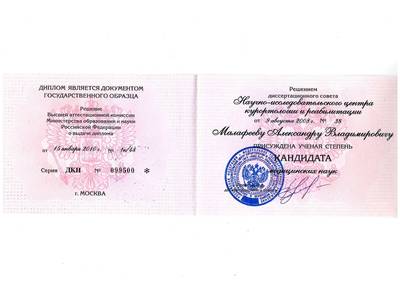 ДИПЛОМ ЯВЛЯЕТСЯ ДОКУМЕНТОМ
ГОСУДАРСТВЕННОГО ОБРАЗЦА
Решение
Высшей аттестационной комиссии
Министерства образования и науки
Российской Федерации
о выдаче диплома
от 15 января 2010 г. №
Серия ДКН № 099500 *
г. МОСКВА
Решением
диссертационного совета
Научно-исследовательского центра
курортологии и реабилитации
от 3 августа 2009 г. № 38
Малафееву Александру Владимировичу
ПРИСУЖДЕНА УЧЕНАЯ СТЕПЕНЬ
КАНДИДАТА
медицинских наук